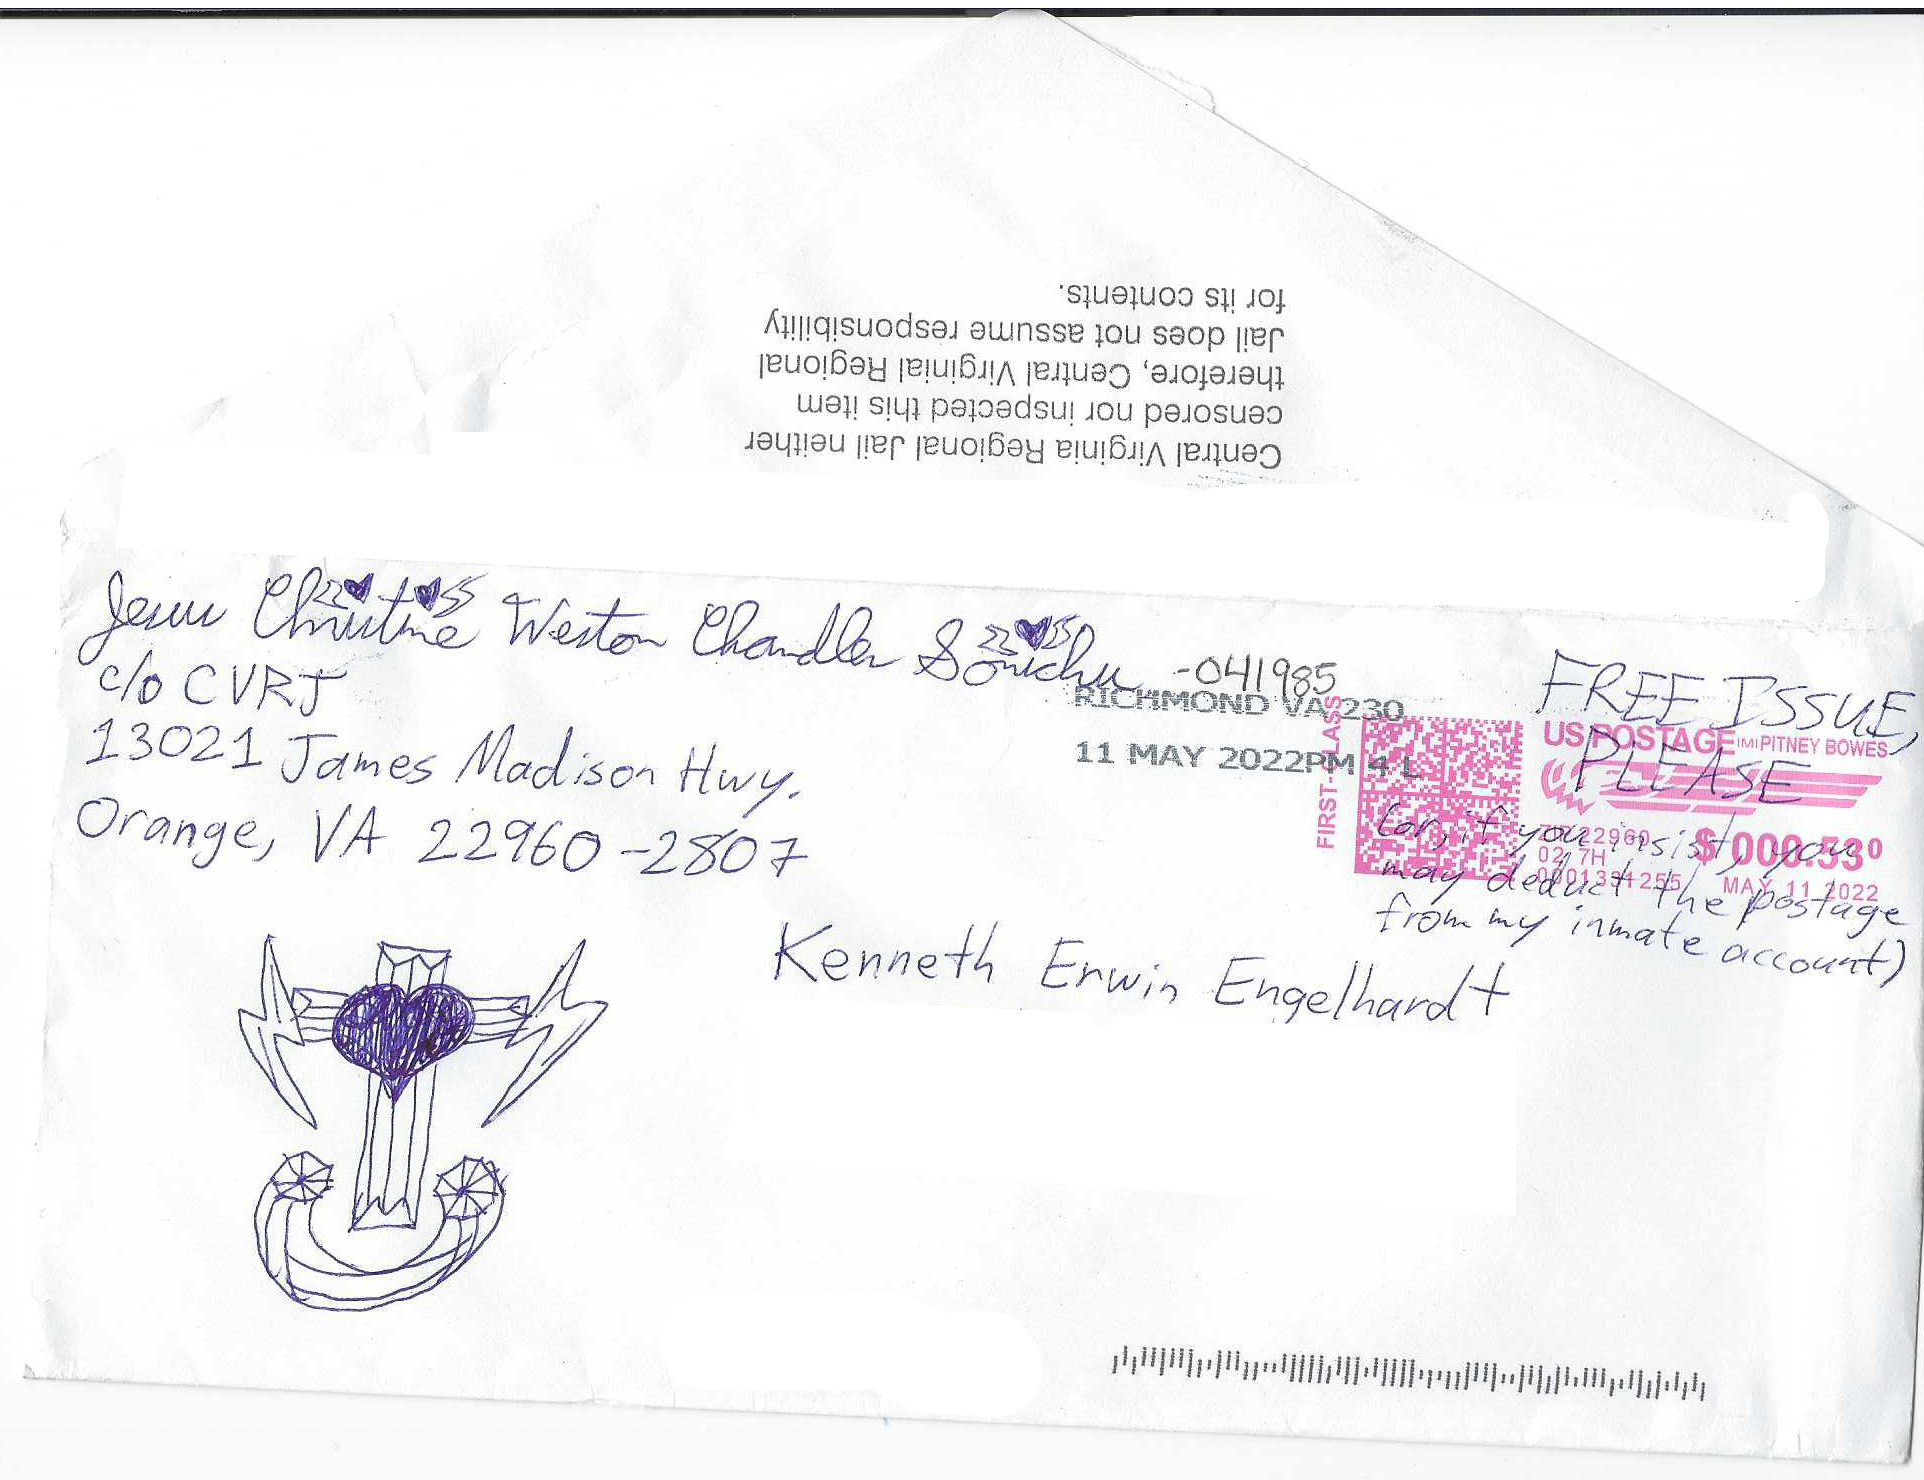 Central Virginia Regional Jail neither
censored nor inspected this item
therefore, Central Virginial Regional
Jail does not assume responsibility
for its contents.
Jesus Christine Weston Chandler Sonichu -041985
c/o CVRJ
13021 James Madison Hwy.
Orange, VA 22960-2807
RICHMOND VA 230
11 MAY 2022 PM 4 L
FREE ISSUE,
PLEASE
(or, if you insist, you
may deduct the postage
from my inmate account)
FIRST-CLASS
US POSTAGE IMI PITNEY BOWES
ZIP 22960 $ 000.53⁰
02 7H
0001331255 MAY 11 2022
Kenneth Erwin Engelhardt